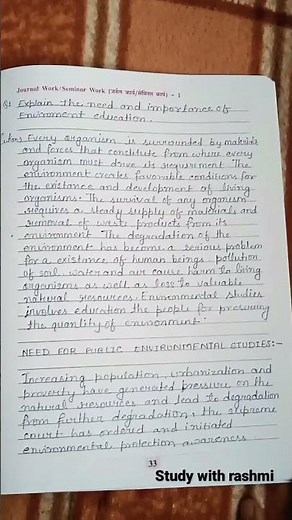 Journal Work/Seminar Work (जर्नल कार्य/सेमिनार कार्य) - 1
Q1 Explain the need and importance of
Environment education.
Every organism is surrounded by materials
and forces that constitute from where every
organism must drive its requirement. The
environment creates favorable conditions for
the existance and development of living
organisms. The survival of any organism
requires a steady supply of materials and
removal of waste products from its
environment. The degradation of the
environment has become a serious problem
for a existance of human beings. pollution
of soil, water and air cause harm to living
organisms as well as loss to valuable
natural resources. Environmental studies
involves education the people for preserving
the quantity of environment.
NEED FOR PUBLIC ENVIRONMENTAL STUDIES:-
Increasing population, urbanization and
poverty have generated pressure on the
natural resources and lead to degradation
from further degradation, the supreme
court has ordered and initiated
environmental protection awareness
33
Study with rashmi